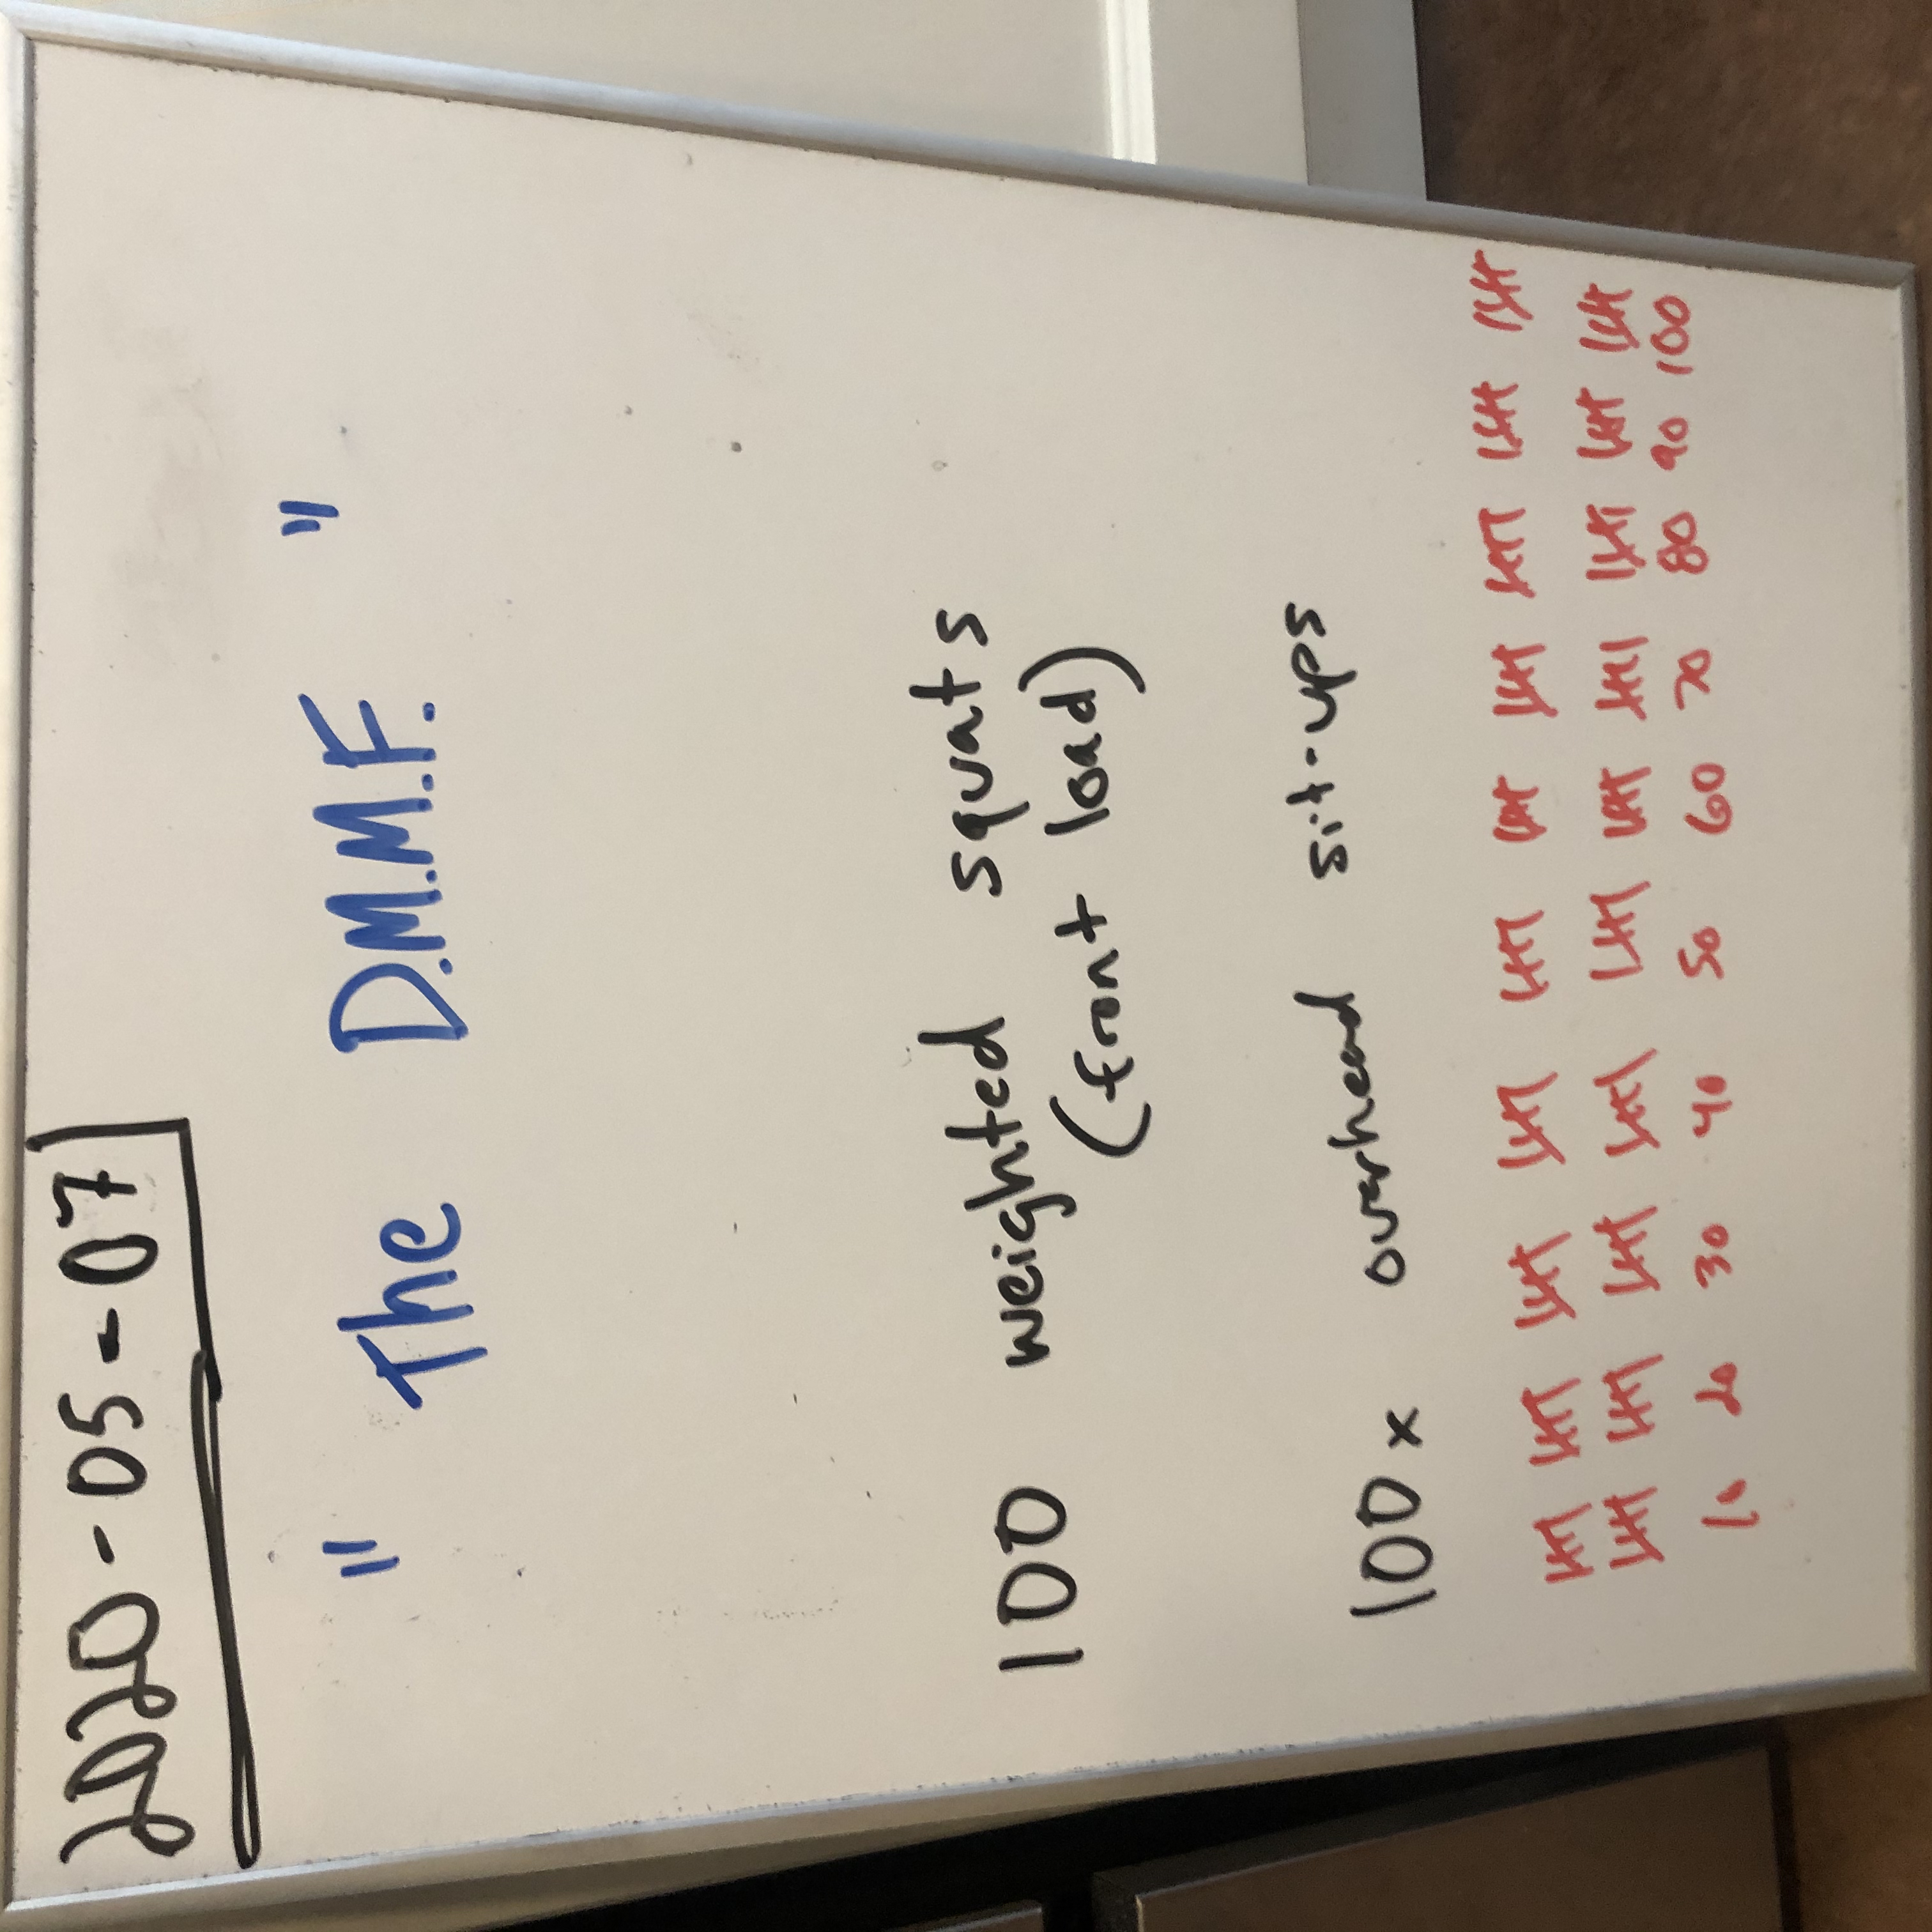 2020-05-07
" The D.M.M.F. "
100 weighted squats
(front load)
100x overhead sit-ups
10 20 30 40 50 60 70 80 90 100